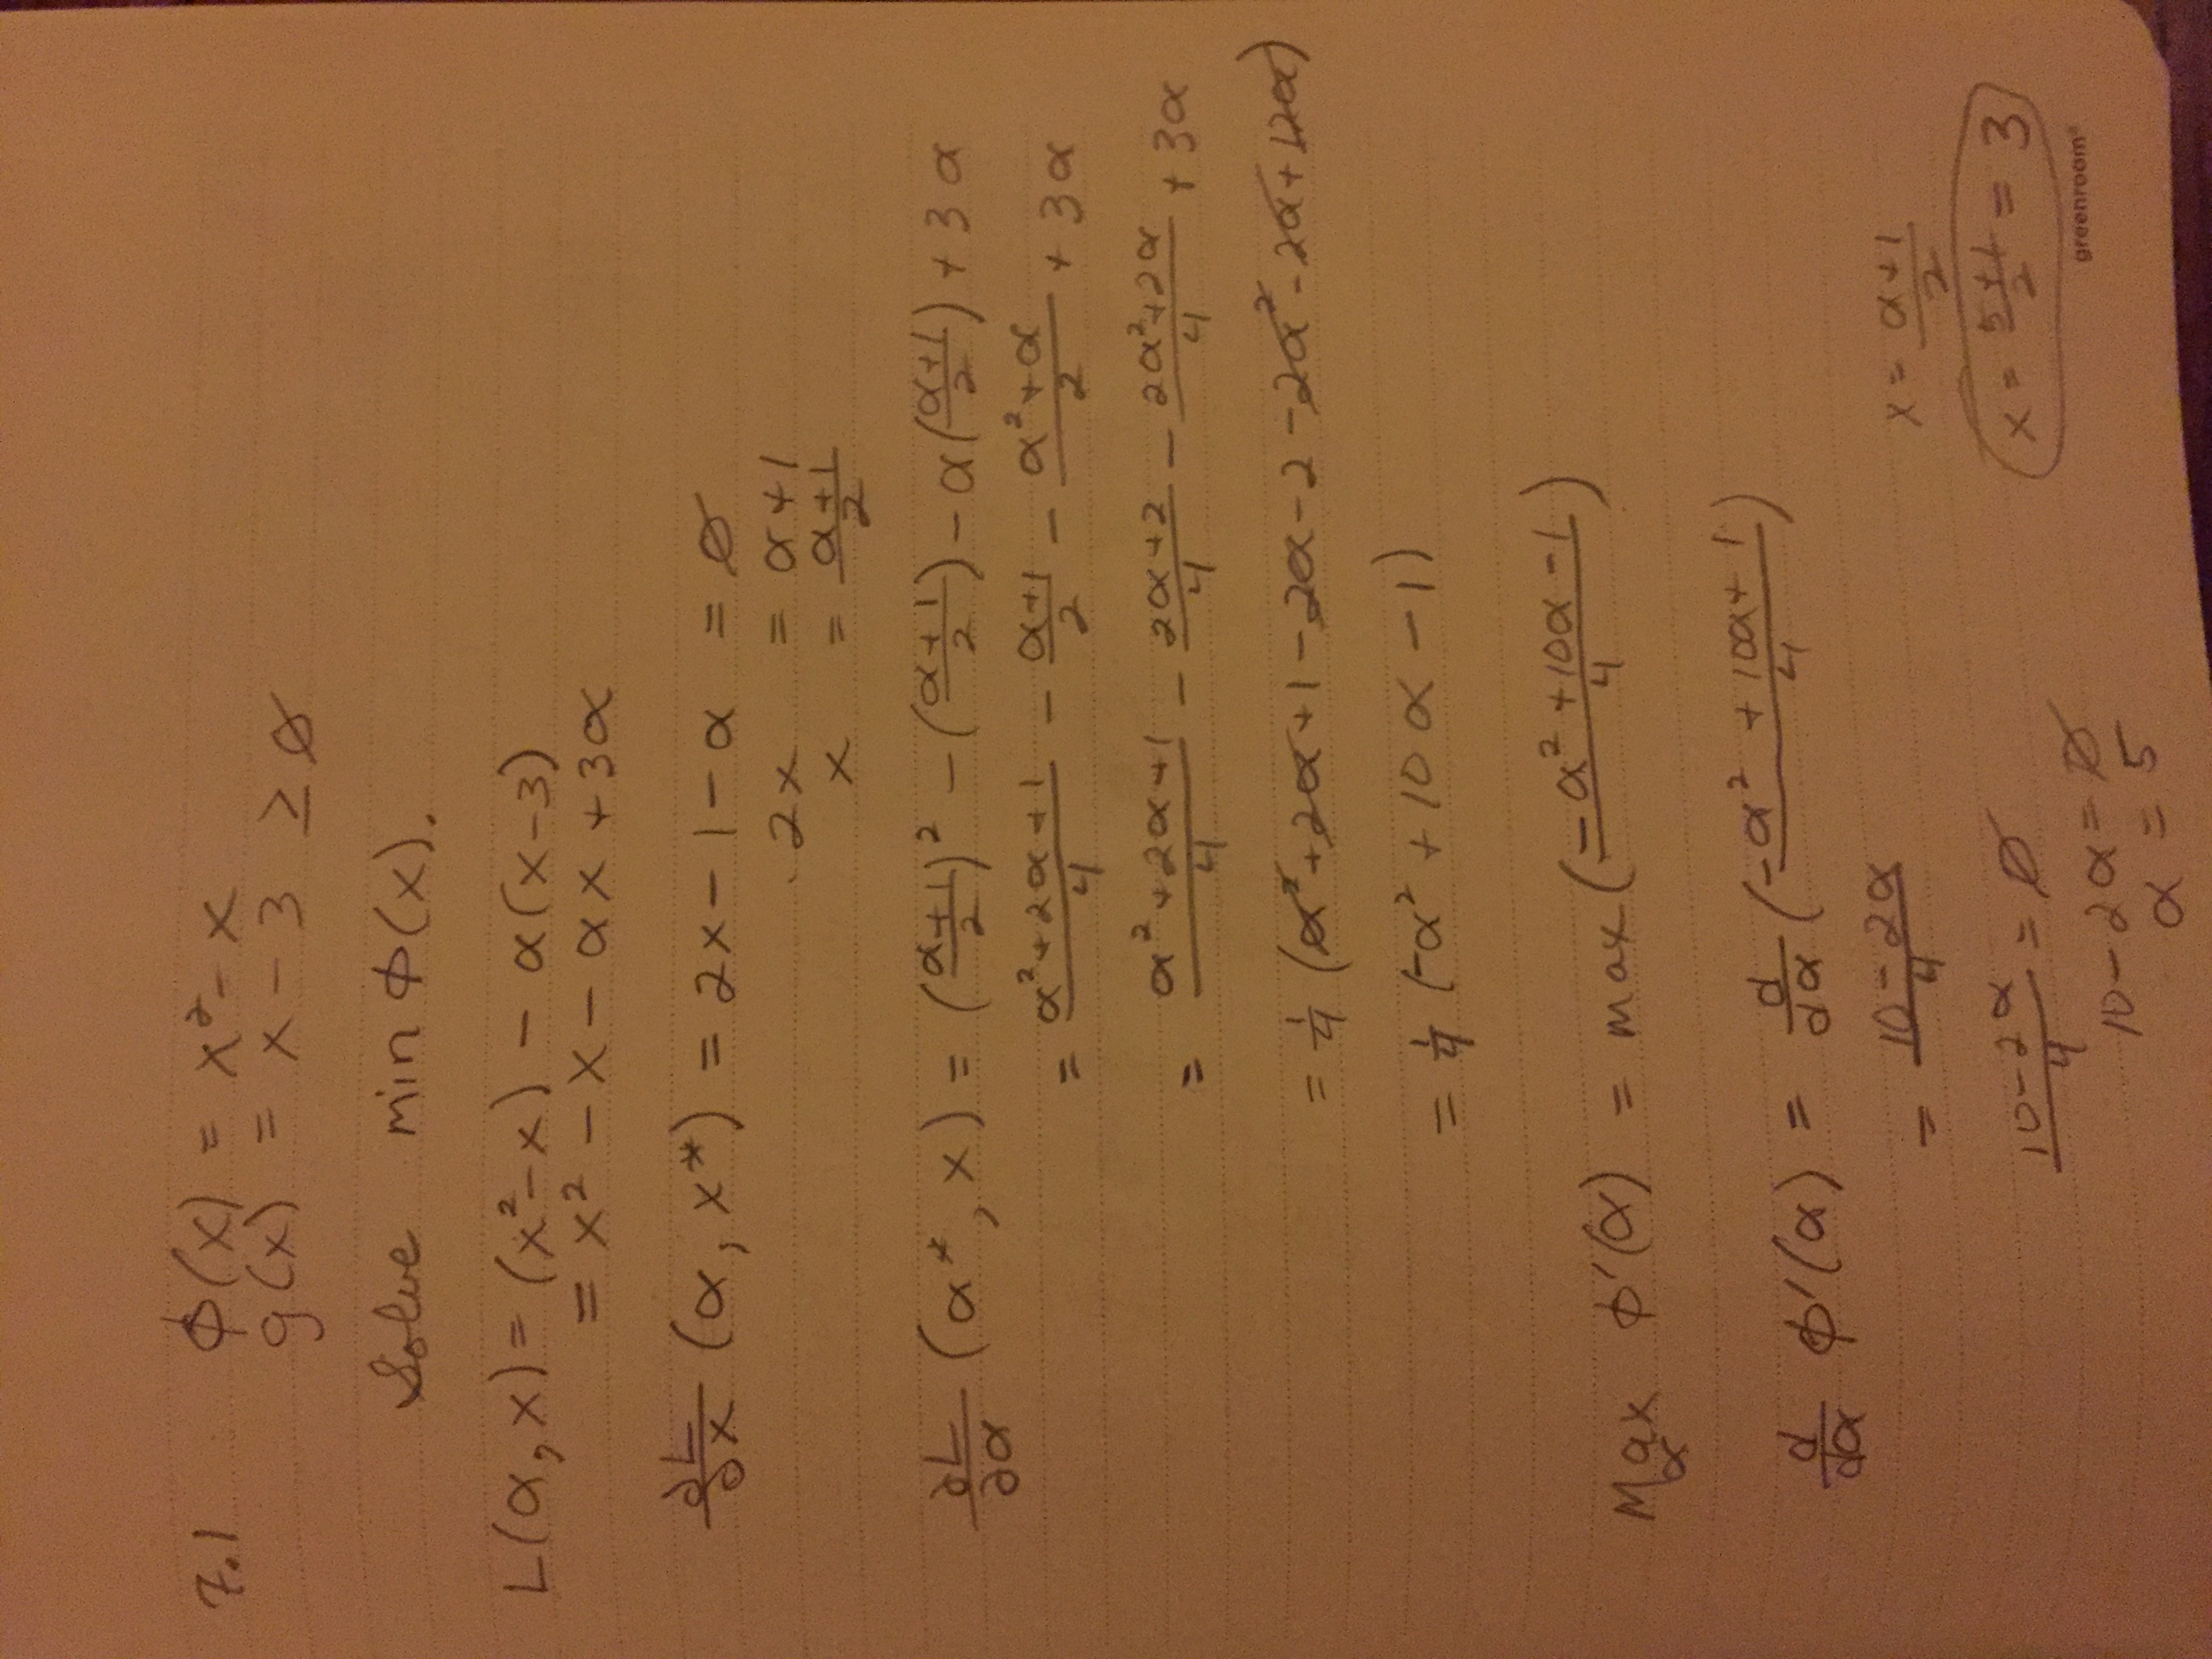 7.1 ϕ(x) = x² - x
g(x) = x - 3 ≥ ∅
Solve min ϕ(x).
L(α, x) = (x² - x) - α(x - 3)
= x² - x - αx + 3α
∂L/∂x (α, x*) = 2x - 1 - α = ∅
2x = α + 1
x = (α+1)/2
∂L/∂α (α*, x) = ((α+1)/2)² - ((α+1)/2) - α((α+1)/2) + 3α
= (α²+2α+1)/4 - (α+1)/2 - (α²+α)/2 + 3α
= (α²+2α+1)/4 - (2α+2)/4 - (2α²+2α)/4 + 3α
= 1/4 (α² + 2α + 1 - 2α - 2 - 2α² - 2α + 12α)
= 1/4 (-α² + 10α - 1)
Max α ϕ'(α) = max((-α² + 10α - 1)/4)
d/dα ϕ'(α) = d/dα ((-α² + 10α + 1)/4)
= (10 - 2α)/4
(10 - 2α)/4 = ∅
10 - 2α = ∅
α = 5
x = (α+1)/2
x = (5+1)/2 = 3
greenroom®